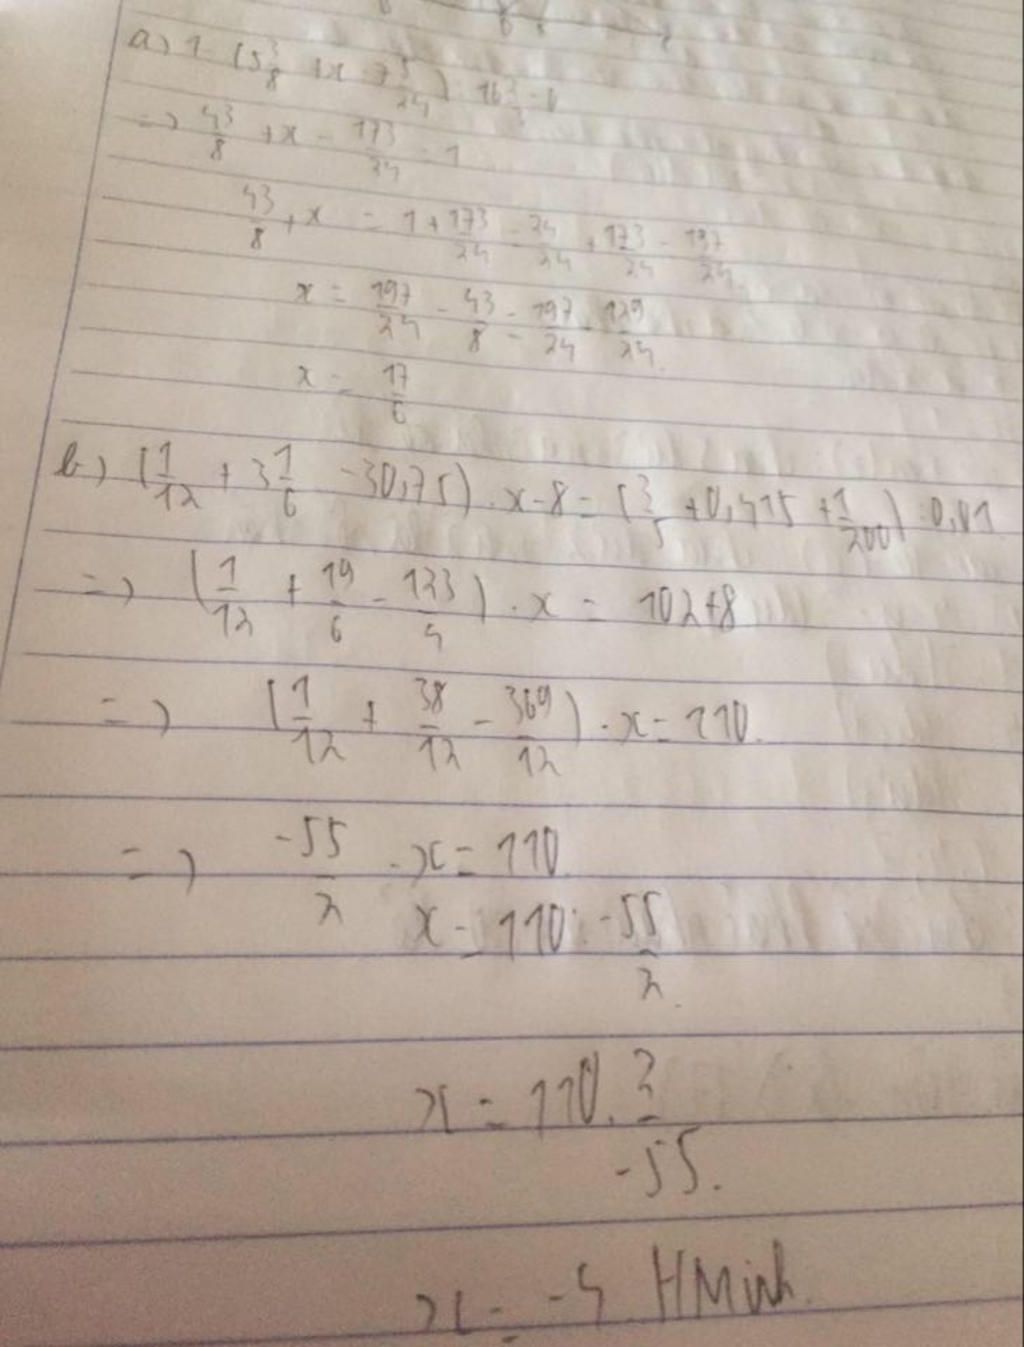 a) 1 - (5 3/8 + x - 7 5/24) : 16 2/3 = 0
=> 43/8 + x - 173/24 = 1
43/8 + x = 1 + 173/24 = 24/24 + 173/24 = 197/24
x = 197/24 - 43/8 = 197/24 - 129/24
x = 17/6
b) (1/12 + 3 1/6 - 30,75) . x - 8 = (3/5 + 0,415 + 1/200) : 0,01
=> (1/12 + 19/6 - 123/4) . x = 102 + 8
=> (1/12 + 38/12 - 369/12) . x = 110
=> -55/2 . x = 110
x = 110 : -55/2
x = 110 . 2/-55
x = -4 HMinh